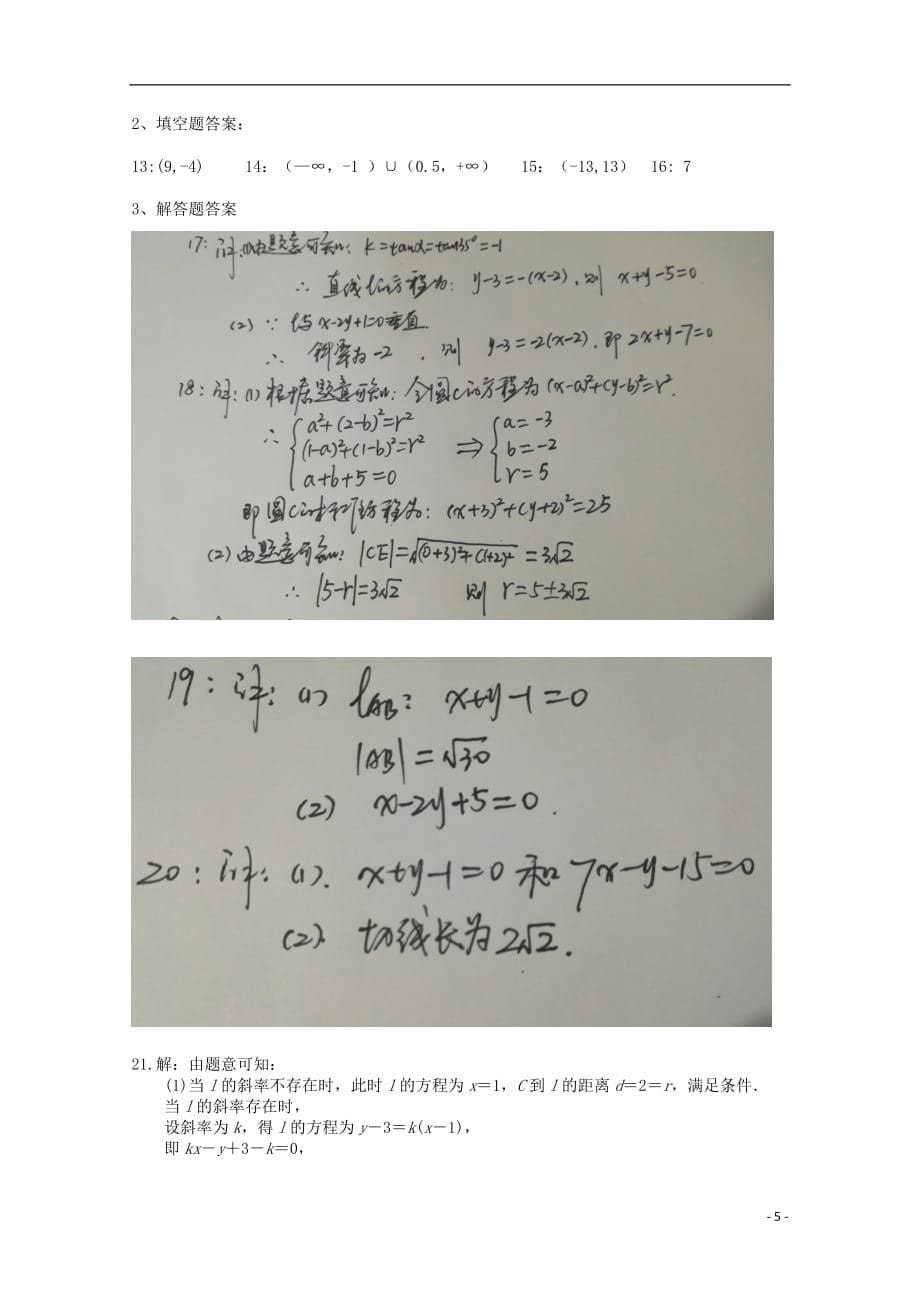 2、填空题答案：
13:(9,-4) 14：（—∞，-1 ）∪（0.5，+∞） 15：（-13,13） 16: 7
3、解答题答案
17：评：(1)由题意可知：k=tanα=tan135°=-1
∴ 直线l的方程为：y-3=-(x-2)，则 x+y-5=0
(2) ∵ l与x-2y+1=0垂直.
∴ 斜率为-2，则 y-3=-2(x-2)，即 2x+y-7=0
18：评：(1)根据题意可知：令圆C的方程为(x-a)²+(y-b)²=r².
∴ { a²+(2-b)²=r² { a=-3
(1-a)²+(1-b)²=r² ⇒ b=-2
a+b+5=0 r=5
即圆C的标准方程为：(x+3)²+(y+2)²=25
(2)由题意可知：|CE|=√(0+3)²+(1+2)²=3√2
∴ |5-r|=3√2 则 r=5±3√2
19：评：(1) l_AB：x+y-1=0
|AB|=√30
(2) x-2y+5=0.
20：评：(1). x+y-1=0 和 7x-y-15=0
(2). 切线长为2√2.
21.解：由题意可知：
(1)当 l 的斜率不存在时，此时 l 的方程为 x＝1，C 到 l 的距离 d＝2＝r，满足条件．
当 l 的斜率存在时，
设斜率为 k，得 l 的方程为 y－3＝k(x－1)，
即 kx－y＋3－k＝0，
- 5 -